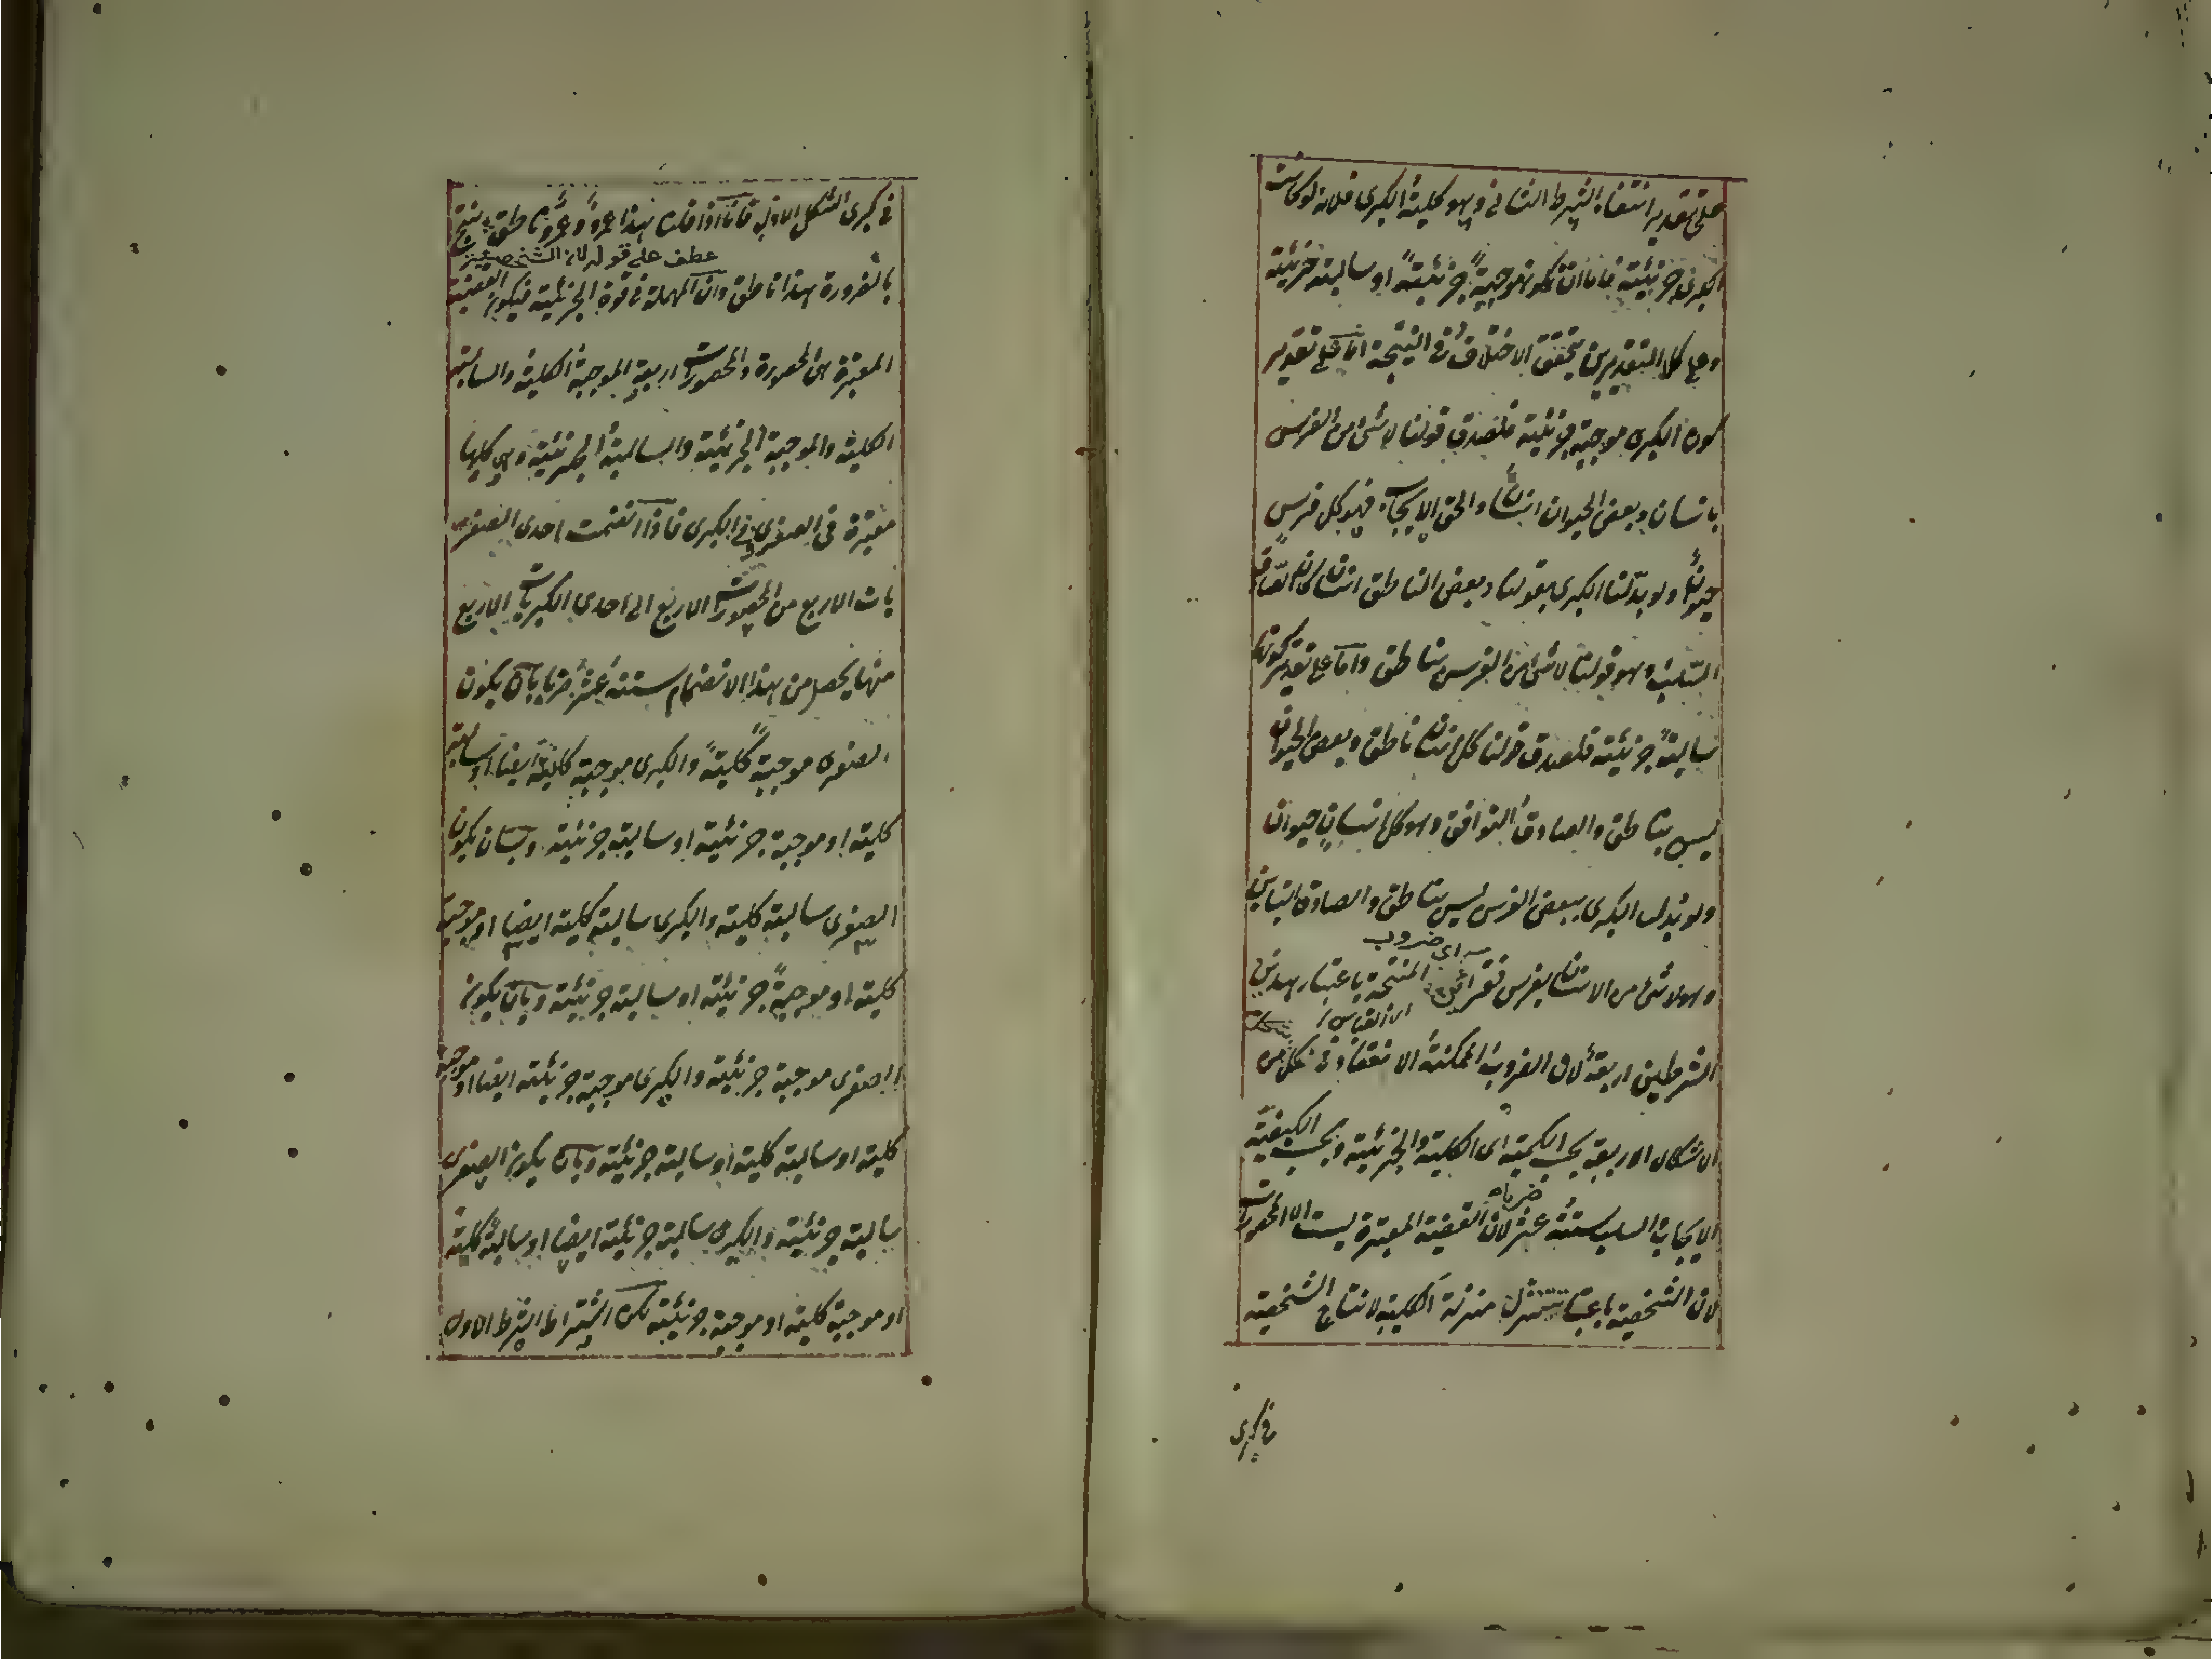 على تقدير انتفاء الشرط الثانى وهو كلية الكبرى فلانه لو كانت
الكبرى جزئية فاما ان تكون موجبةً جزئيةً او سالبة جزئية
وعلى كلا التقديرين يتحقق الاختلاف فى النتيجة اما على تقدير
كون الكبرى موجبة جزئية فلصدق قولنا لا شئ من الفرس
بانسان وبعض الحيوان انسان والحق الايجاب وهو كل فرس
حيوان ولو بدلنا الكبرى بقولنا وبعض الناطق انسان كان الصادق
السلب وهو قولنا لا شئ من الفرس بناطق واما على تقدير كونها
سالبةً جزئية فلصدق قولنا كل انسان ناطق وبعض الحيوان
ليس بناطق والصادق التوافق وهو كل انسان حيوان
ولو بدل الكبرى ببعض الفرس ليس بناطق والصادق التباين
اى ضروب
وهو لا شئ من الانسان بفرس المنتجة باعتبار هذين
لان القياس
الشرطين اربعة لان الضروب الممكنة الانعقاد فى كل من
الاشكال الاربعة بحسب الكمية اى الكلية والجزئية وبحسب الكيفية
ضربا
الايجاب السلب ستة عشر لان القضية المعتبرة ليست الا المحصورات
لان الشخصية باعتبار منزلة الكلية لانتاج الشخصية
فى كبرى
فى كبرى الشكل الاول فانا اذا قلنا هذا عمرو وعمرو ناطق ينتج
عطف على قوله لان الشخصية
بالضرورة هذا ناطق وان المهملة فى قوة الجزئية فيكون القضية
المعتبرة هى المحصورة والمحصورات اربعة الموجبة الكلية والسالبة
الكلية والموجبة الجزئية والسالبة الجزئية وهى كلها
معتبرة فى الصغرى وفى الكبرى فاذا انضمت احدى الصغر
يات الاربع من المحصورات الاربع الى احدى الكبريات الاربع
منها يحصل من هذا الانضمام ستة عشر ضربا بان يكون
الصغرى موجبةً كليةً والكبرى موجبة كلية ايضا او سالبة
كلية او موجبة جزئية او سالبة جزئية وبان يكون
الصغرى سالبة كلية والكبرى سالبة كلية ايضا او موجبة
كلية او موجبةً جزئية او سالبة جزئية وبان يكون
الصغرى موجبة جزئية والكبرى موجبة جزئية ايضا او موجبة
كلية او سالبة كلية او سالبة جزئية وبان يكون الصغرى
سالبة جزئية والكبرى سالبة جزئية ايضا او سالبة كلية
او موجبة كلية او موجبة جزئية لكن اشتراط الشرط الاول